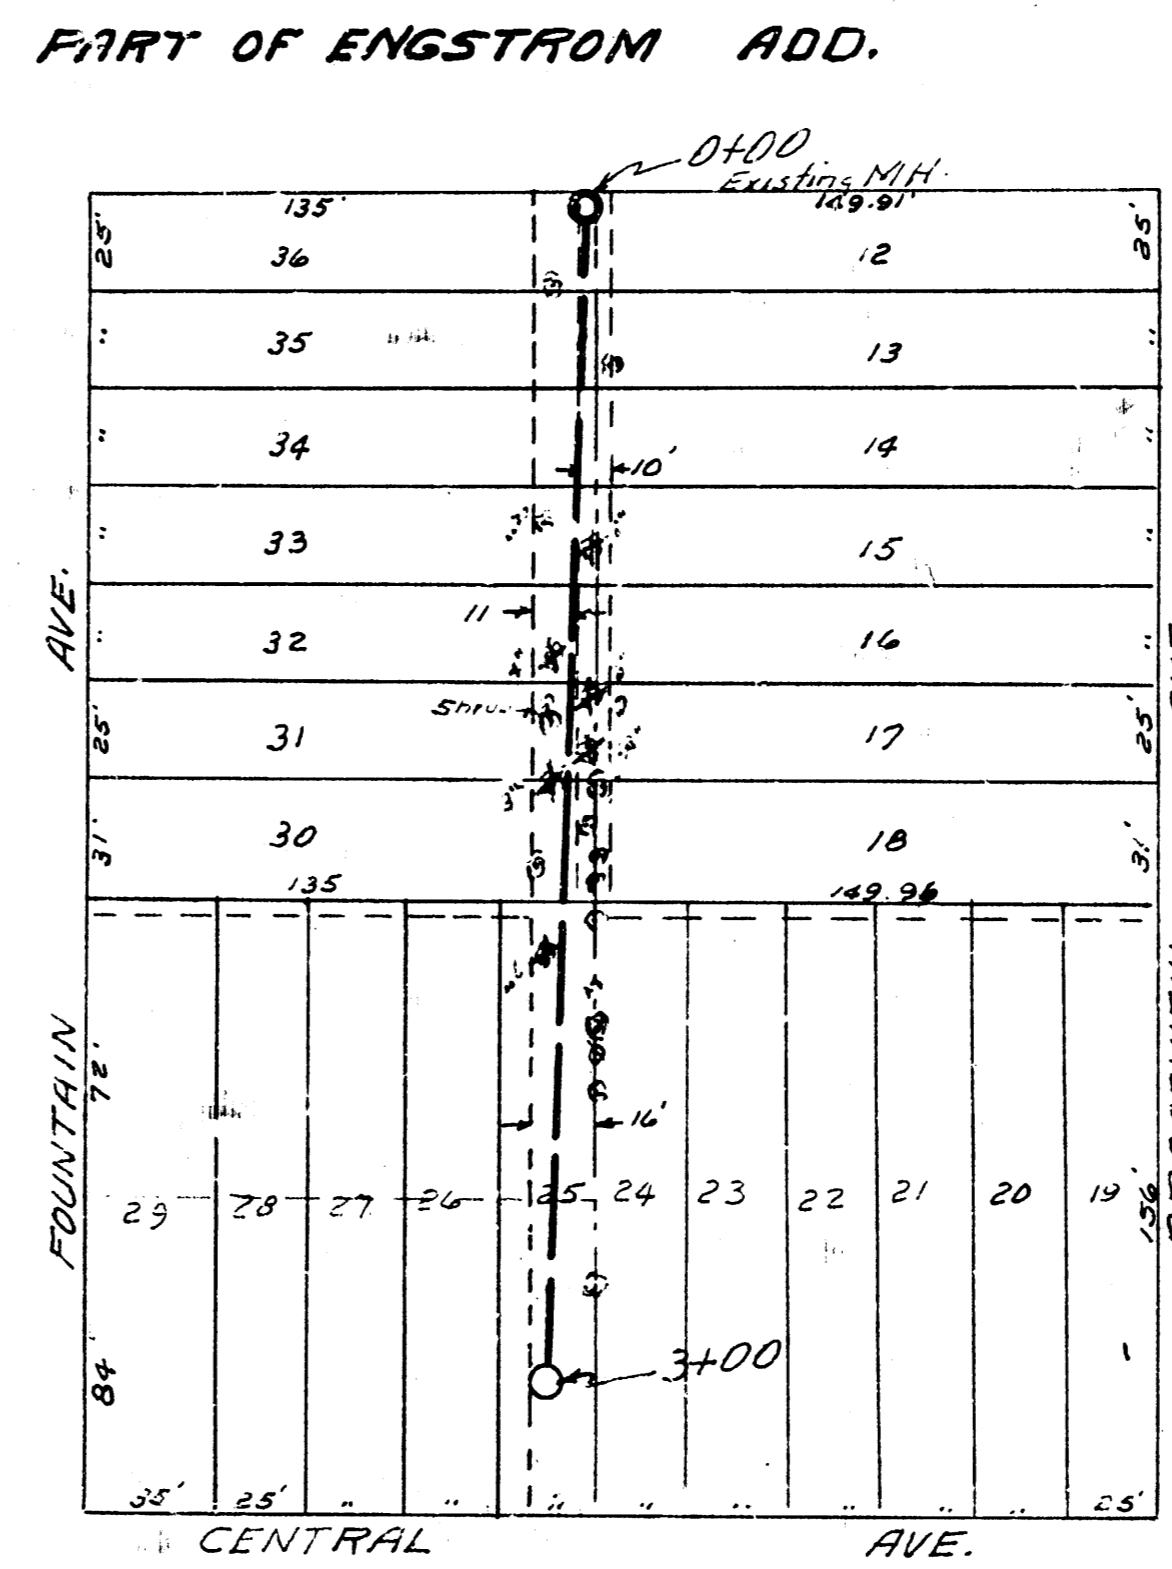 PART OF ENGSTROM ADD.
0+00
Existing MH.
135'
149.91'
25'
36
12
25'
"
35
13
"
"
34
14
"
10'
"
33
15
"
11
"
32
16
"
25'
31
17
25'
31'
30
18
31'
135
149.96
AVE.
FOUNTAIN
72'
16'
29
28
27
26
25
24
23
22
21
20
19
156'
84
3+00
35'
25'
"
"
"
"
"
"
"
"
25'
CENTRAL AVE.